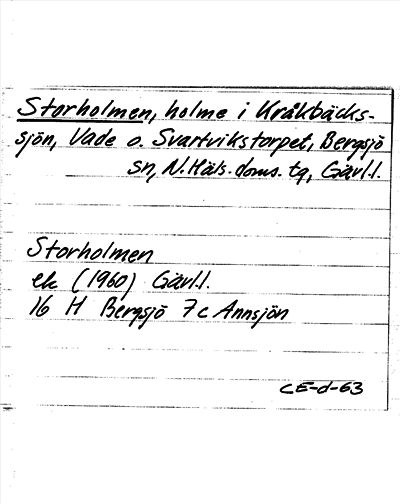 Storholmen, holme i Kråkbäcks-
sjön, Vade o. Svartvikstorpet, Bergsjö
sn, N. Häls. doms. tg, Gävl.l.
Storholmen
ek (1960) Gävl.l.
16 H Bergsjö 7c Annsjön
CE-d-63